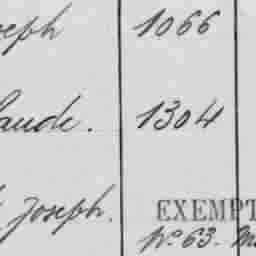 oseph 1066
laude. 1304
Joseph. EXEMPT
No 63. M